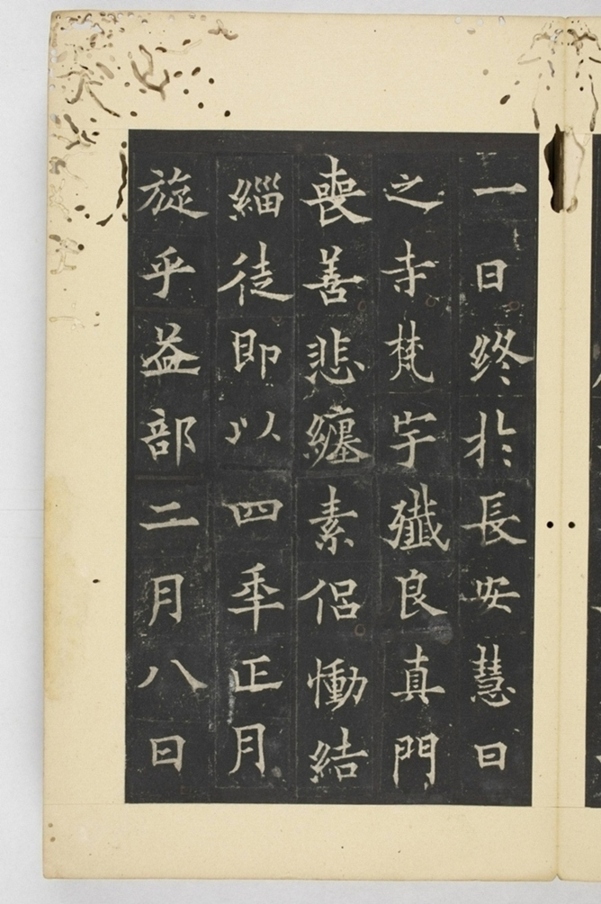 一日終於長安慧日
之寺梵宇殲良真門
喪善悲纏素侶慟結
緇徒即以四年正月
旋乎益部二月八日